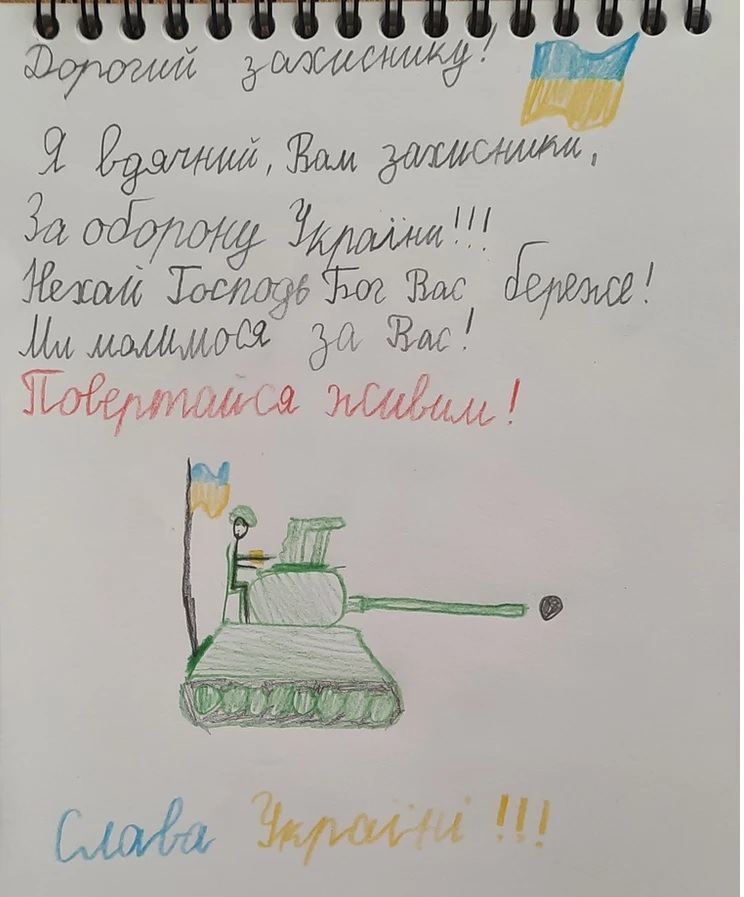 Дорогий захиснику!
Я вдячний, Вам захисники,
За оборону України!!!
Нехай Господь Бог Вас береже!
Ми молимося за Вас!
Повертайся живим!
Слава Україні!!!